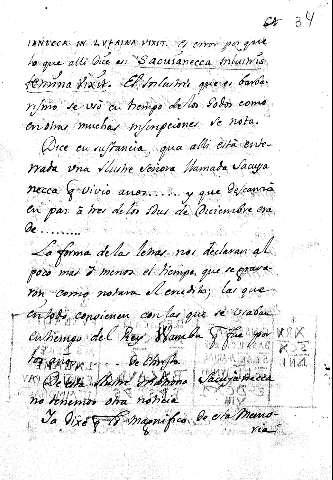 34
IANNECA IN LVTRINA VIXIT. Es error por que
lo que alli Dice es: Sacusanecca Inlustris
femina vixit. El Inlustris que es barba-
rismo se usó en tiempo de los Godos como
en otras muchas inscripciones se nota.
Dice en sustancia, que alli está ente-
rrada una Ilustre Señora llamada Sacusa
necca q vivio anos....... y que descansa
en paz a tres de los Idus de Diciembre era
de.........
La forma de las letras nos declaran al
poco mas o menos el tiempo, que se grava-
ron como notara el erudito, las que
en todo convienen con las que se usaban
en tiempo del Rey Wamba q fue por
de Christo
De esta Ilustre Matrona Sacusanecca
no tenemos otra noticia
Ya dixe q lo magnifico de esta Memo-
ria